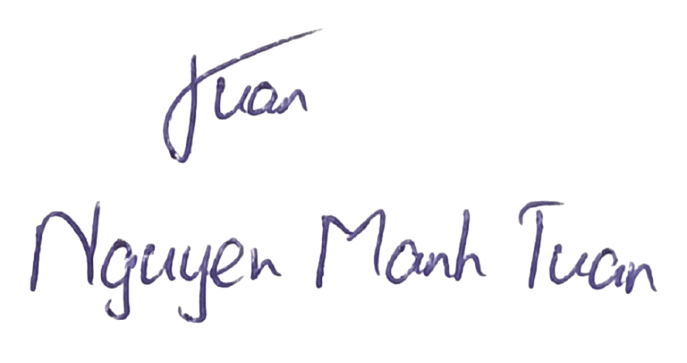 Tuan
Nguyen Manh Tuan